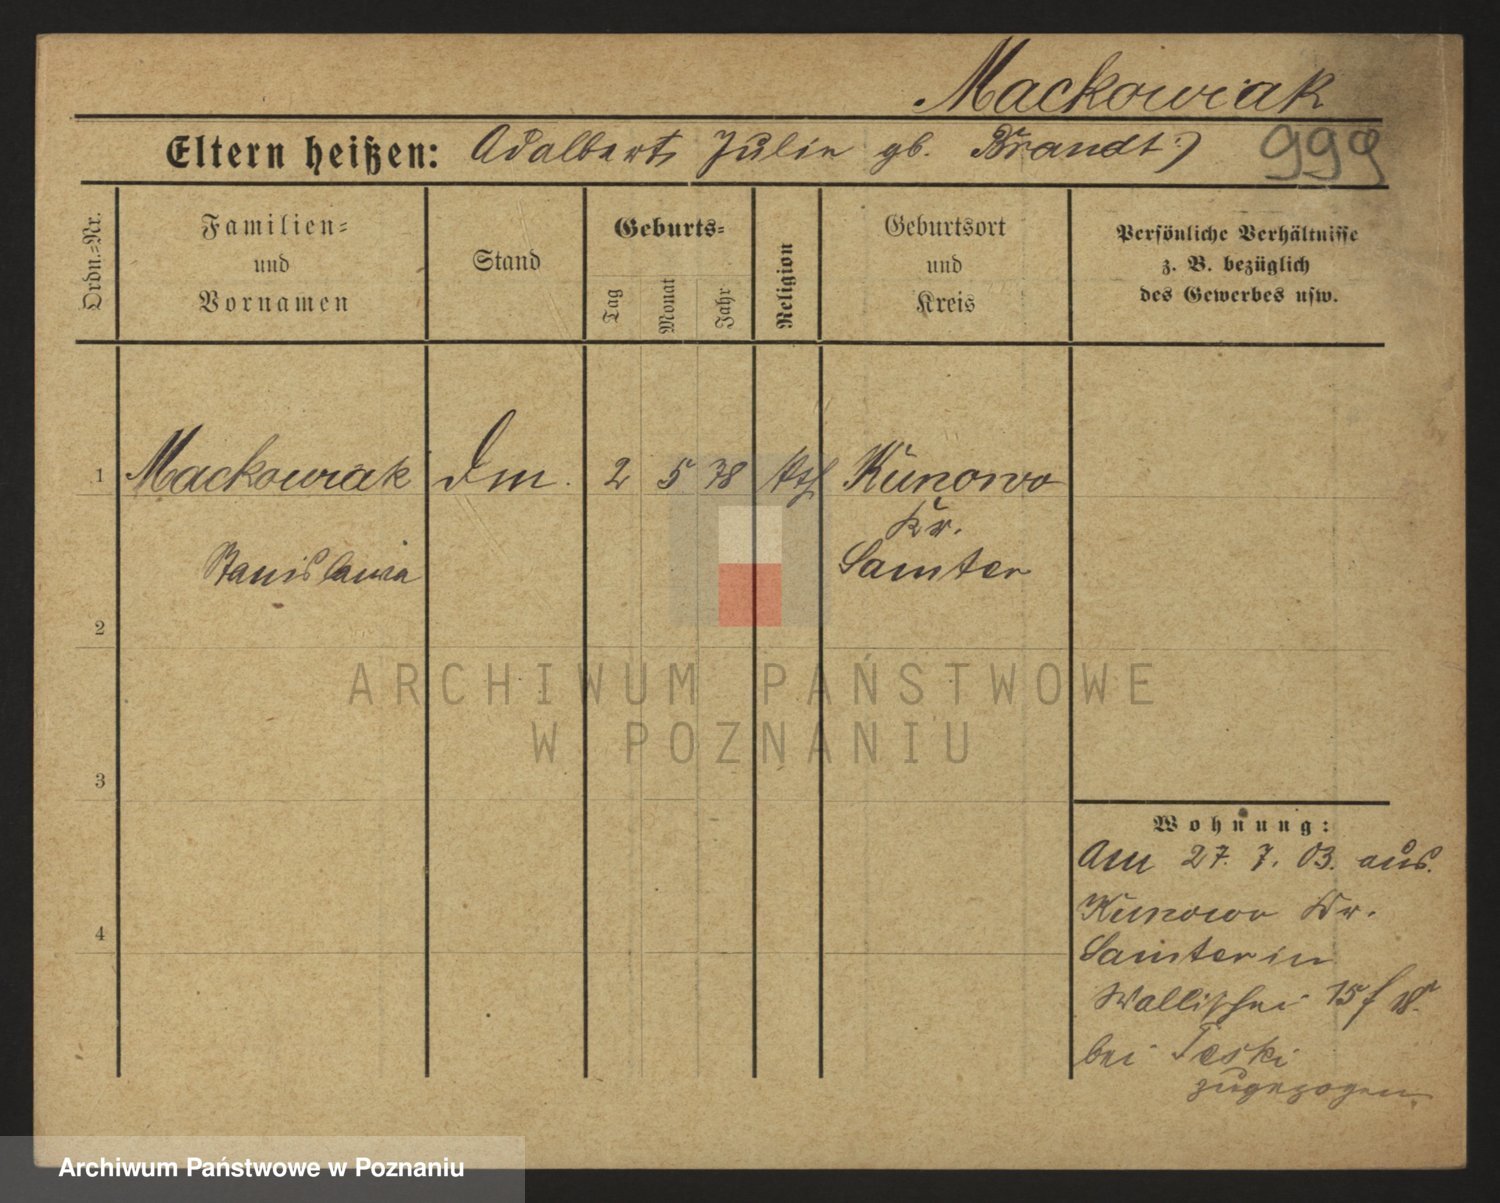 Mackowiak
Eltern heißen: Adalbert Julie gb. Brandt
999
Ordn.=Nr.
Familien=
und
Vornamen
Stand
Geburts=
Tag
Monat
Jahr
Religion
Geburtsort
und
Kreis
Persönliche Verhältnisse
z. B. bezüglich
des Gewerbes usw.
1 Mackowiak 2 5 78 kth Kunowo
Kr.
Stanislawa Samter
2
3
4
Wohnung:
Am 27. 7. 03. aus
Kunowo Kr.
Samter in
Wallischei 15
bei Teski
zugezogen
ARCHIWUM PAŃSTWOWE
W POZNANIU
Archiwum Państwowe w Poznaniu